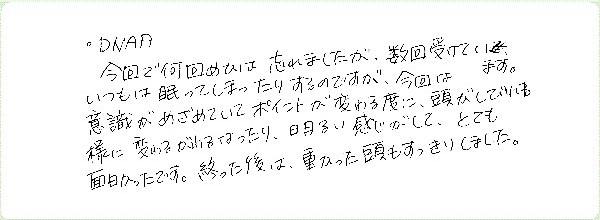 ◦DNAA
今回で何回めかは忘れましたが、数回受けています。
いつもは眠ってしまったりするのですが、今回は
意識がめざめていてポイントが変わる度に、頭がしびれる
様に変わるがれるなったり、明るい感じがして、とても
面白かったです。終った後は、重かった頭もすっきりしました。